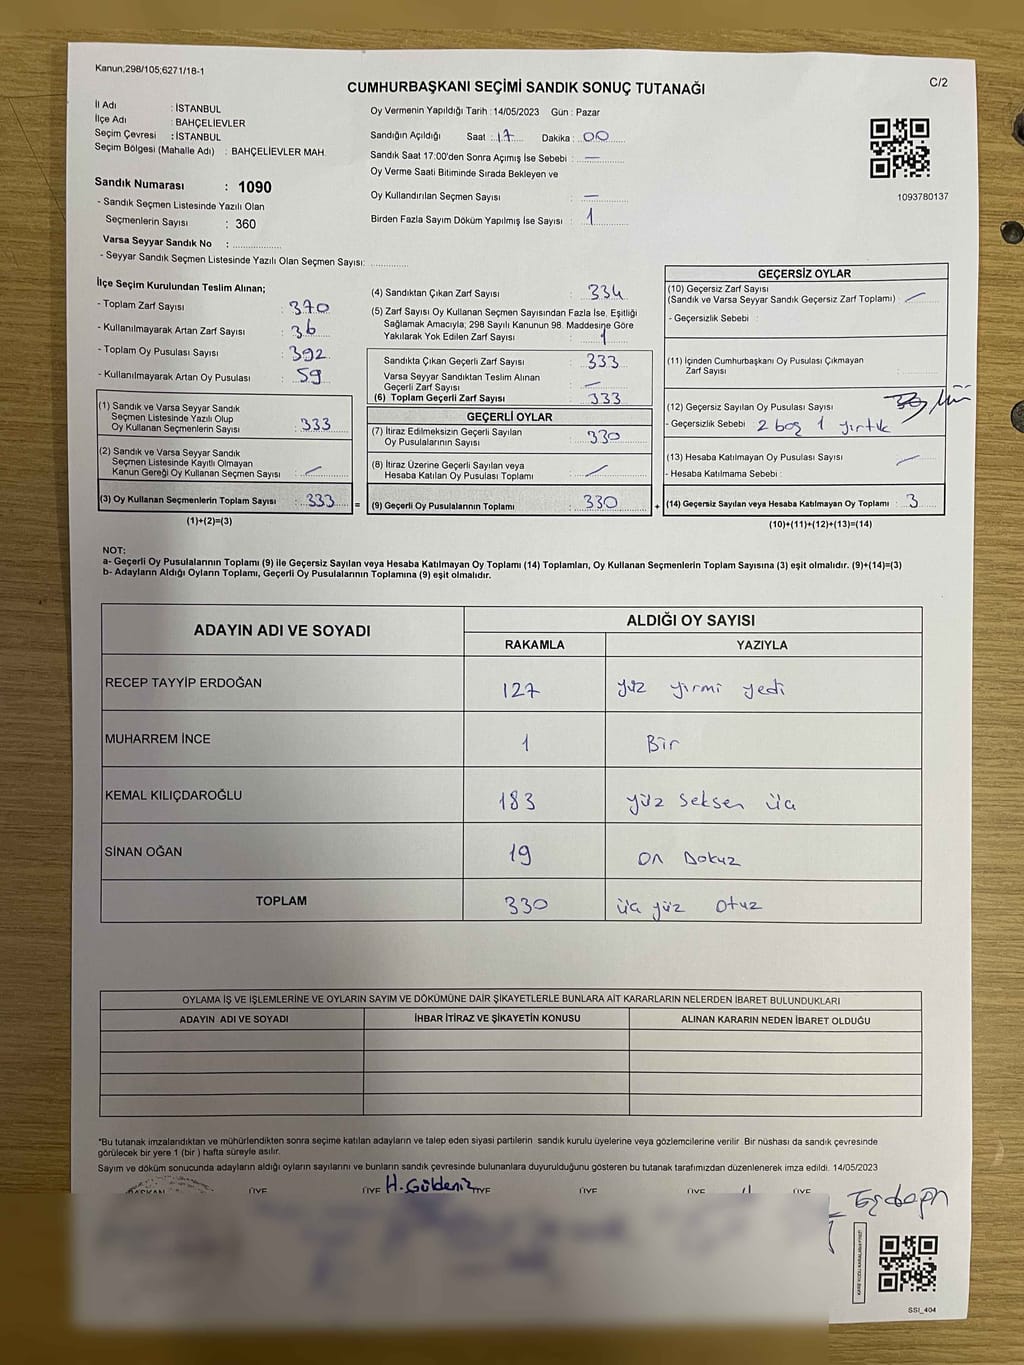 Kanun;298/105;6271/18-1
C/2
CUMHURBAŞKANI SEÇİMİ SANDIK SONUÇ TUTANAĞI
İl Adı : İSTANBUL
İlçe Adı : BAHÇELİEVLER
Seçim Çevresi : İSTANBUL
Seçim Bölgesi (Mahalle Adı) : BAHÇELİEVLER MAH.
Sandık Numarası : 1090
- Sandık Seçmen Listesinde Yazılı Olan
Seçmenlerin Sayısı : 360
Varsa Seyyar Sandık No :
- Seyyar Sandık Seçmen Listesinde Yazılı Olan Seçmen Sayısı:
Oy Vermenin Yapıldığı Tarih : 14/05/2023 Gün : Pazar
Sandığın Açıldığı Saat : 17 Dakika : 00
Sandık Saat 17:00'den Sonra Açımış İse Sebebi : —
Oy Verme Saati Bitiminde Sırada Bekleyen ve
Oy Kullandırılan Seçmen Sayısı : —
Birden Fazla Sayım Döküm Yapılmış İse Sayısı : 1
1093780137
İlçe Seçim Kurulundan Teslim Alınan;
- Toplam Zarf Sayısı : 370
- Kullanılmayarak Artan Zarf Sayısı : 36
- Toplam Oy Pusulası Sayısı : 392
- Kullanılmayarak Artan Oy Pusulası : 59
(1) Sandık ve Varsa Seyyar Sandık
Seçmen Listesinde Yazılı Olup
Oy Kullanan Seçmenlerin Sayısı : 333
(2) Sandık ve Varsa Seyyar Sandık
Seçmen Listesinde Kayıtlı Olmayan
Kanun Gereği Oy Kullanan Seçmen Sayısı :
(3) Oy Kullanan Seçmenlerin Toplam Sayısı : 333 =
(1)+(2)=(3)
(4) Sandıktan Çıkan Zarf Sayısı : 334
(5) Zarf Sayısı Oy Kullanan Seçmen Sayısından Fazla İse, Eşitliği
Sağlamak Amacıyla; 298 Sayılı Kanunun 98. Maddesine Göre
Yakılarak Yok Edilen Zarf Sayısı : 1
Sandıkta Çıkan Geçerli Zarf Sayısı : 333
Varsa Seyyar Sandıktan Teslim Alınan
Geçerli Zarf Sayısı : —
(6) Toplam Geçerli Zarf Sayısı : 333
GEÇERLİ OYLAR
(7) İtiraz Edilmeksizin Geçerli Sayılan
Oy Pusulalarının Sayısı : 330
(8) İtiraz Üzerine Geçerli Sayılan veya
Hesaba Katılan Oy Pusulası Toplamı :
(9) Geçerli Oy Pusulalarının Toplamı : 330 +
GEÇERSİZ OYLAR
(10) Geçersiz Zarf Sayısı
(Sandık ve Varsa Seyyar Sandık Geçersiz Zarf Toplamı) :
- Geçersizlik Sebebi :
(11) İçinden Cumhurbaşkanı Oy Pusulası Çıkmayan
Zarf Sayısı :
(12) Geçersiz Sayılan Oy Pusulası Sayısı :
- Geçersizlik Sebebi : 2 boş 1 yırtık
(13) Hesaba Katılmayan Oy Pusulası Sayısı :
- Hesaba Katılmama Sebebi :
(14) Geçersiz Sayılan veya Hesaba Katılmayan Oy Toplamı : 3
(10)+(11)+(12)+(13)=(14)
NOT:
a- Geçerli Oy Pusulalarının Toplamı (9) ile Geçersiz Sayılan veya Hesaba Katılmayan Oy Toplamı (14) Toplamları, Oy Kullanan Seçmenlerin Toplam Sayısına (3) eşit olmalıdır. (9)+(14)=(3)
b- Adayların Aldığı Oyların Toplamı, Geçerli Oy Pusulalarının Toplamına (9) eşit olmalıdır.
ADAYIN ADI VE SOYADI
ALDIĞI OY SAYISI
RAKAMLA YAZIYLA
RECEP TAYYİP ERDOĞAN 127 yüz yirmi yedi
MUHARREM İNCE 1 Bir
KEMAL KILIÇDAROĞLU 183 yüz seksen üç
SİNAN OĞAN 19 on Dokuz
TOPLAM 330 üç yüz otuz
OYLAMA İŞ VE İŞLEMLERİNE VE OYLARIN SAYIM VE DÖKÜMÜNE DAİR ŞİKAYETLERLE BUNLARA AİT KARARLARIN NELERDEN İBARET BULUNDUKLARI
ADAYIN ADI VE SOYADI İHBAR İTİRAZ VE ŞİKAYETİN KONUSU ALINAN KARARIN NEDEN İBARET OLDUĞU
*Bu tutanak imzalandıktan ve mühürlendikten sonra seçime katılan adayların ve talep eden siyasi partilerin sandık kurulu üyelerine veya gözlemcilerine verilir. Bir nüshası da sandık çevresinde
görülecek bir yere 1 (bir ) hafta süreyle asılır.
Sayım ve döküm sonucunda adayların aldığı oyların sayılarını ve bunların sandık çevresinde bulunanlara duyurulduğunu gösteren bu tutanak tarafımızdan düzenlenerek imza edildi. 14/05/2023
BAŞKAN ÜYE ÜYE H.Güldeniz ÜYE ÜYE ÜYE ÜYE
SSİ_404